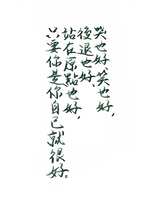 哭也好、笑也好，
後退也好、
站在原點也好，
只要你是你自己就很好。